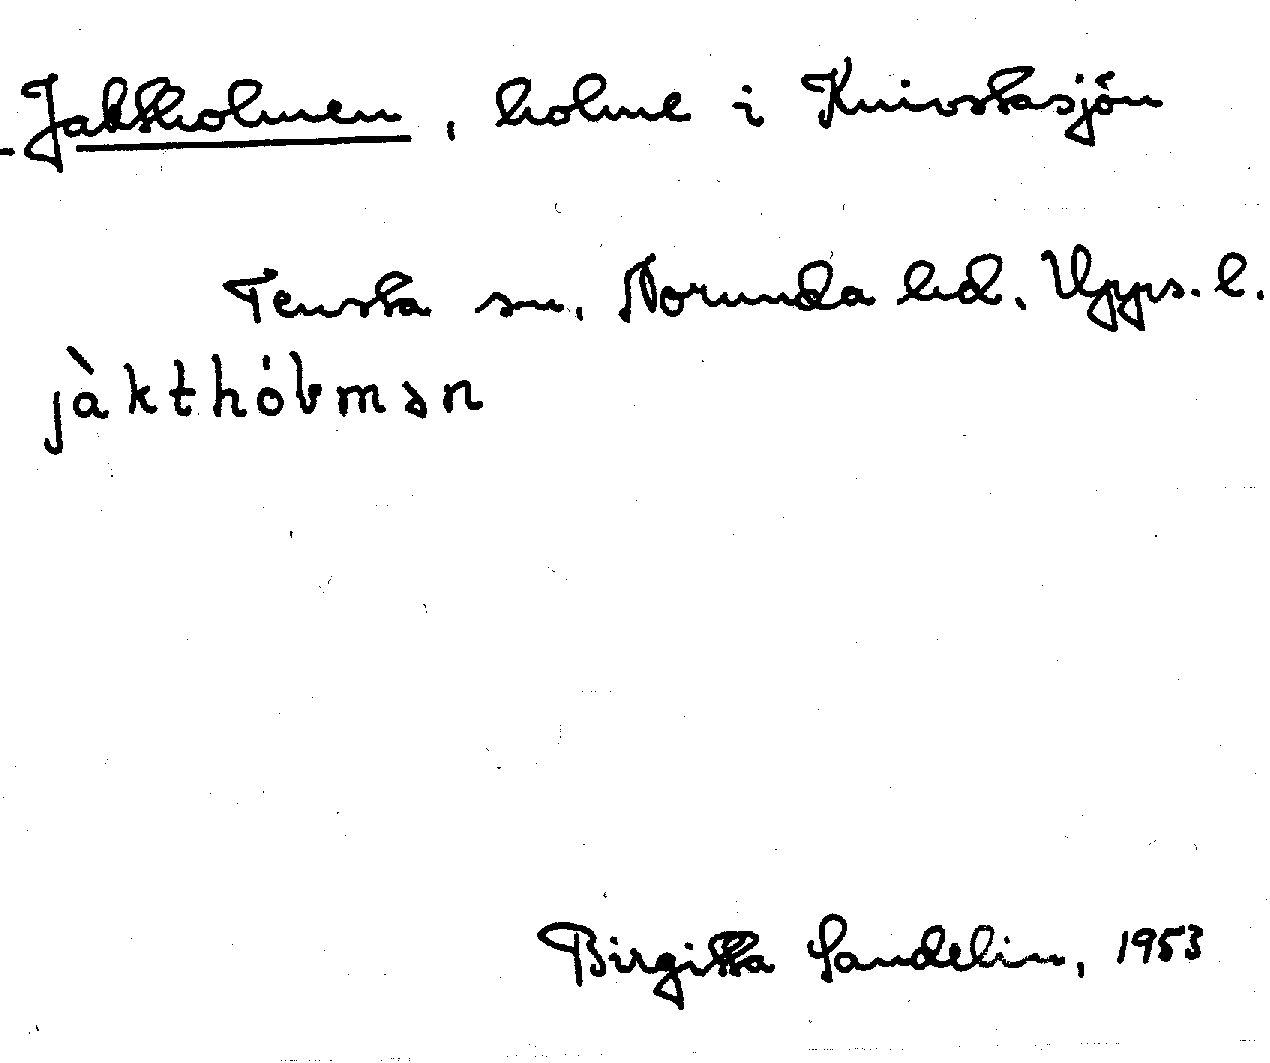 Jaktholmen, holme i Knivstasjön
Tensta sn, Norunda hd. Upps. l.
jàkthóɫmən
Birgitta Sandelin, 1953